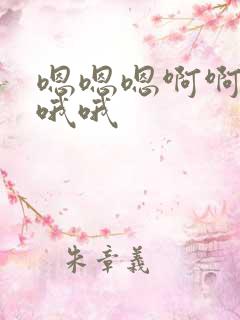 嗯嗯嗯啊啊
哦哦
朱章義